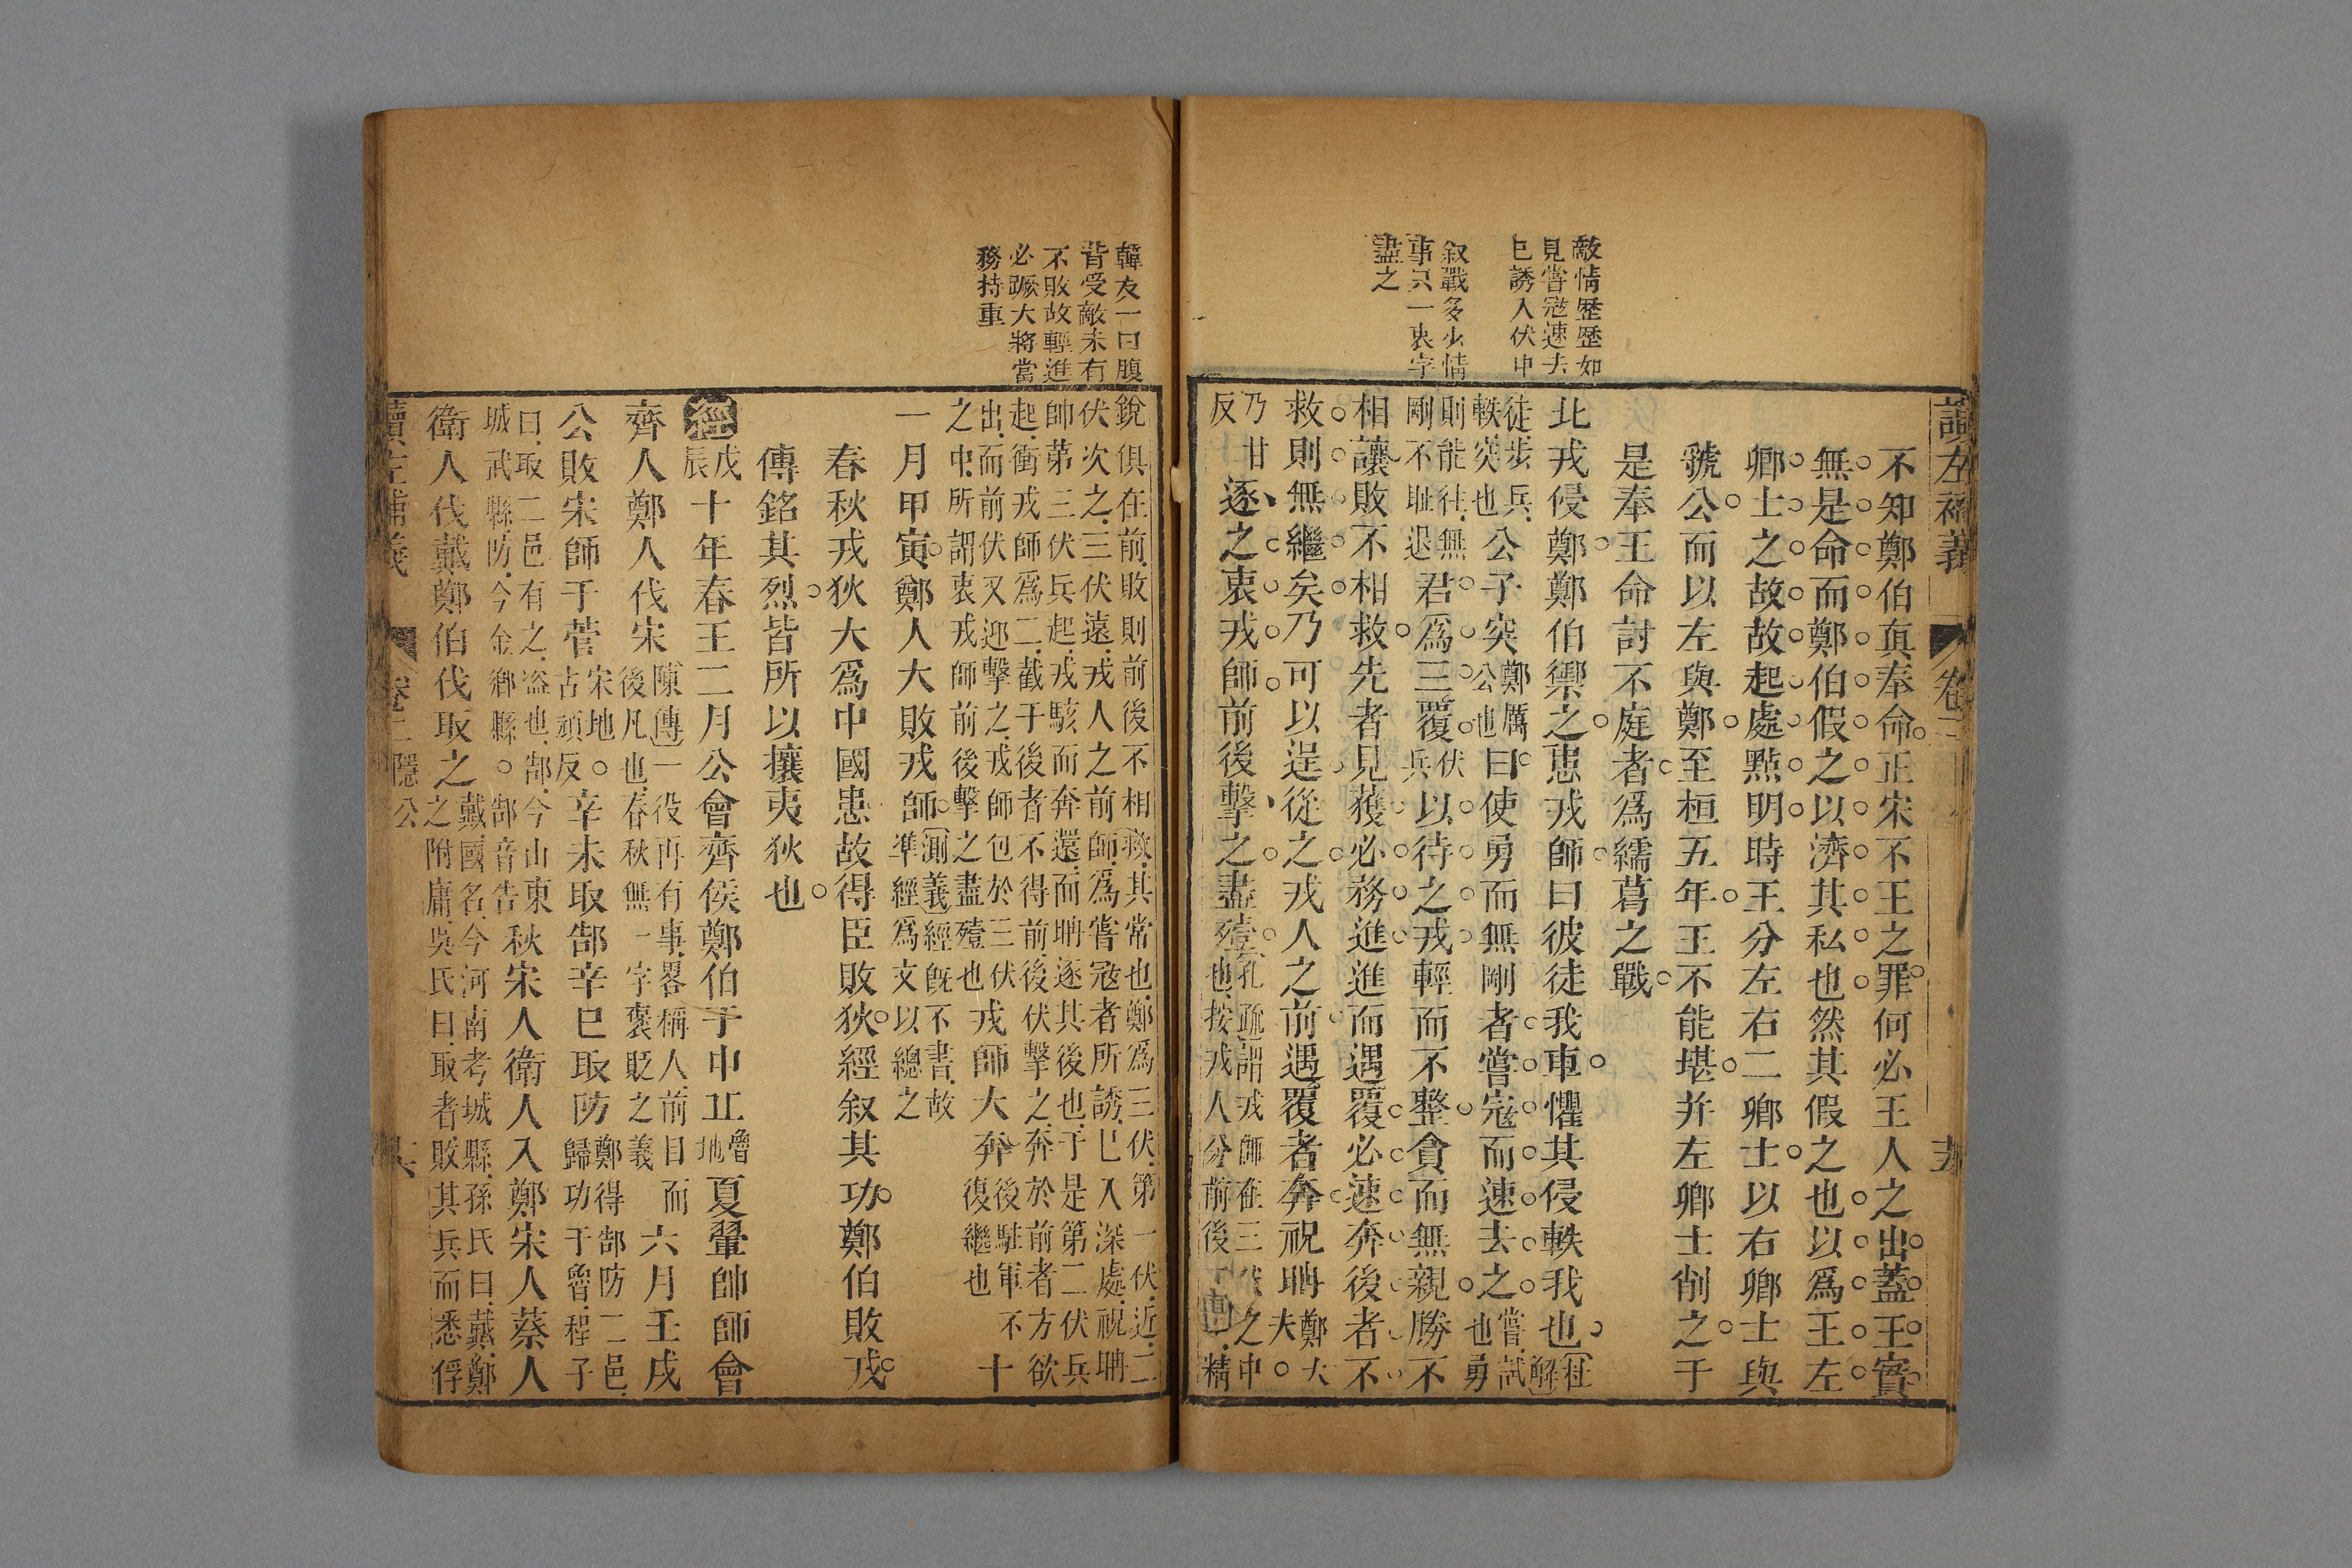 讀左補義
卷二
敵情歷歷如
見嘗寇速去
已誘入伏中
叙戰多少情
事只一衷字
盡之
不知鄭伯真奉命正宋不王之罪何必王人之出蓋王實
無是命而鄭伯假之以濟其私也然其假之也以爲王左
卿士之故故起處點明時王分左右二卿士以右卿士與
虢公而以左與鄭至桓五年王不能堪并左卿士削之于
是奉王命討不庭者爲繻葛之戰
北戎侵鄭鄭伯禦之患戎師曰彼徒我車懼其侵軼我也杜解
徒步兵
軼突也
公子突
鄭厲
公也
曰使勇而無剛者嘗寇而速去之
嘗試
也勇
則能往無
剛不耻退
君爲三覆
伏
兵
以待之戎輕而不整貪而無親勝不
相讓敗不相救先者見獲必務進進而遇覆必速奔後者不
救則無繼矣乃可以逞從之戎人之前遇覆者奔祝聃
鄭大
夫
乃甘
反
逐之衷戎師前後擊之盡殪
孔疏謂戎師在三伏之中
也按戎人分前後
精
韓友一曰腹
背受敵未有
不敗故輕進
必蹶大將當
務持重
銳俱在前敗則前後不相救其常也鄭爲三伏第一伏近二
伏次之三伏遠戎人之前師爲嘗寇者所誘已入深處祝聃
帥第三伏兵起戎駭而奔還而聃逐其後也于是第二伏兵
起衝戎師爲二截于後者不得前後伏擊之奔於前者方欲
出而前伏又迎擊之戎師包於三伏
之中所謂衷戎師前後擊之盡殪也
戎師大奔
後駐軍不
復繼也
十
一月甲寅鄭人大敗戎師
測義經旣不書故
準經爲文以總之
春秋戎狄大爲中國患故得臣敗狄經叙其功鄭伯敗戎
傳銘其烈皆所以攘夷狄也
經
戊
辰
十年春王二月公會齊侯鄭伯于中丘
魯
地
夏翬帥師會
齊人鄭人伐宋
陳傳一役再有事畧稱人前目而
後凡也春秋無一字褒貶之義
六月壬戌
公敗宋師于菅
宋地
古頑反
辛未取郜辛巳取防
鄭得郜防二邑
歸功于魯程子
曰取二邑有之盜也郜今山東
城武縣防今金鄉縣郜音告
秋宋人衛人入鄭宋人蔡人
衛人伐戴鄭伯伐取之
戴國名今河南考城縣孫氏曰戴鄭
之附庸吳氏曰取者敗其兵而悉俘
讀左補義
卷二
隱公